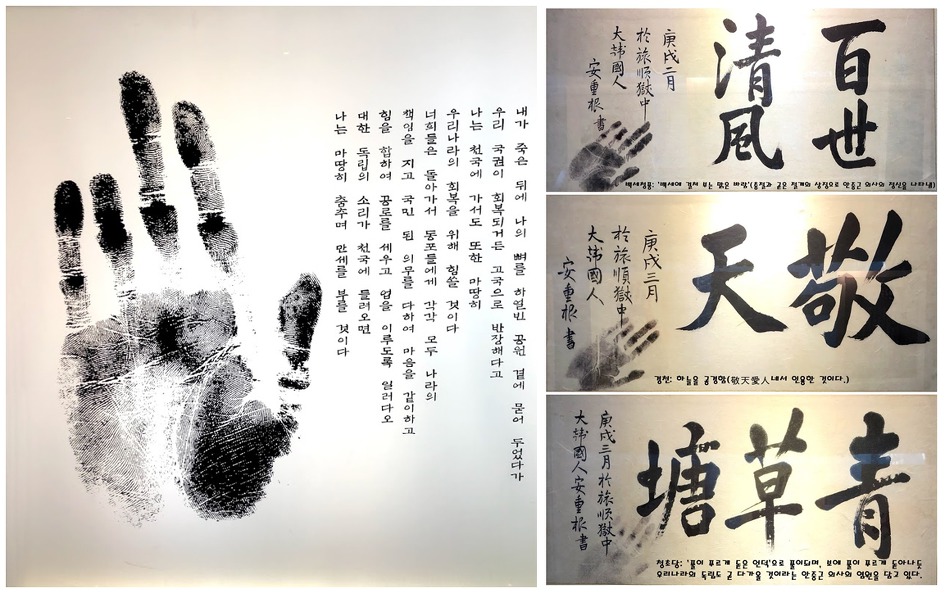 내가 죽은 뒤에 나의 뼈를 하얼빈 공원 곁에 묻어 두었다가
우리 국권이 회복되거든 고국으로 반장해다고
나는 천국에 가서도 또한 마땅히
우리나라의 회복을 위해 힘쓸 것이다
너희들은 돌아가서 동포들에게 각각 모두 나라의
책임을 지고 국민 된 의무를 다하여 마음을 같이하고
힘을 합하여 공로를 세우고 업을 이루도록 일러다오
대한 독립의 소리가 천국에 들려오면
나는 마땅히 춤추며 만세를 부를 것이다
百世
清風
庚戌二月
於旅順獄中
大韓國人
安重根 書
백세청풍: '백세에 걸쳐 부는 맑은 바람'(충절과 굳은 절개의 상징으로 안중근 의사의 정신을 나타냄)
敬
天
庚戌三月
於旅順獄中
大韓國人
安重根 書
경천: 하늘을 공경함(敬天愛人네서 인용한 것이다.)
青
草
塘
庚戌三月於旅順獄中
大韓國人安重根書
청초당: '풀이 푸르게 돋은 언덕'으로 풀이되며, 봄에 풀이 푸르게 돋아나듯
우리나라의 독립도 곧 다가올 것이라는 안중근 의사의 염원을 담고 있다.